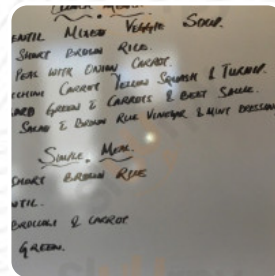 Lunch Menu.
Lentil Mixed Veggie Soup.
Short Brown Rice.
Peas with Onion Carrot.
Carrot Yellow Squash & Turnip.
Green & Carrots & Beet Sauce.
Salad & Brown Rice Vinegar & Mint Dressing
Simple Meal.
Short Brown Rice
Broccoli & Carrot
Green.